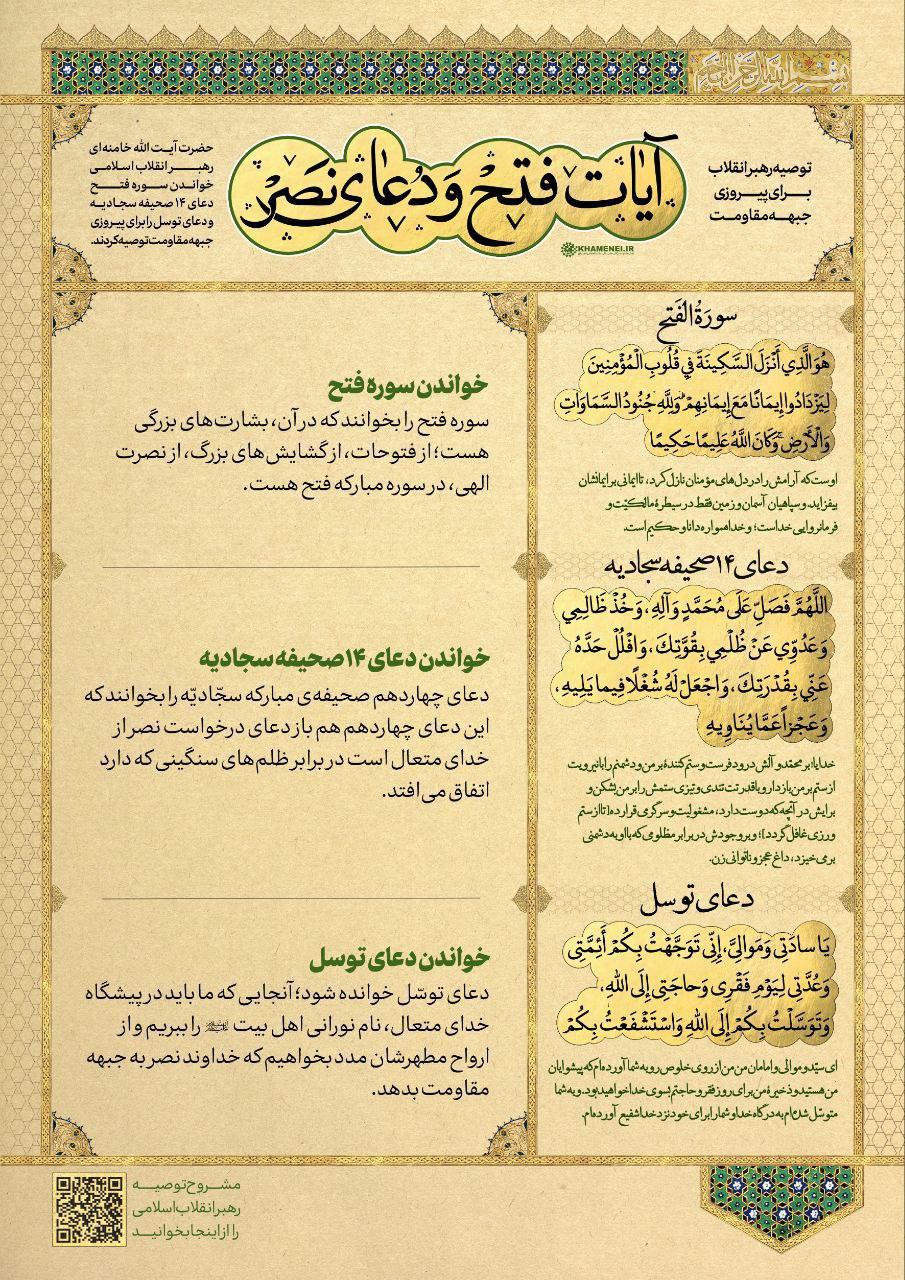 بسم الله الرحمن الرحیم
توصیه رهبر انقلاب
برای پیروزی
جبهه مقاومت
آیات فتح و دعای نصر
KHAMENEI.IR
حضرت آیت الله خامنه‌ای
رهبر انقلاب اسلامی
خواندن سوره فتح
دعای ۱۴ صحیفه سجادیه
و دعای توسل را برای پیروزی
جبهه مقاومت توصیه کردند.
سورَةُ الفَتح
هُوَ الَّذِي أَنْزَلَ السَّكِينَةَ فِي قُلُوبِ الْمُؤْمِنِينَ
لِيَزْدَادُوا إِيمَانًا مَعَ إِيمَانِهِمْ ۗ وَلِلَّهِ جُنُودُ السَّمَاوَاتِ
وَالْأَرْضِ ۚ وَكَانَ اللَّهُ عَلِيمًا حَكِيمًا
اوست که آرامش را در دل‌های مؤمنان نازل کرد، تا ایمانی بر ایمانشان
بیفزاید. و سپاهیان آسمان و زمین فقط در سیطرهٔ مالکیّت و
فرمانروایی خداست؛ و خدا همواره دانا و حکیم است.
خواندن سوره فتح
سوره فتح را بخوانند که در آن، بشارت‌های بزرگی
هست؛ از فتوحات، از گشایش‌های بزرگ، از نصرت
الهی، در سوره مبارکه فتح هست.
دعای ۱۴ صحیفه سجادیه
اللَّهُمَّ فَصَلِّ عَلَى مُحَمَّدٍ وَآلِهِ، وَخُذْ ظَالِمِي
وَعَدُوِّي عَنْ ظُلْمِي بِقُوَّتِكَ، وَافْلُلْ حَدَّهُ
عَنِّي بِقُدْرَتِكَ، وَاجْعَلْ لَهُ شُغْلًا فِيما يَلِيهِ،
وَعَجْزاً عَمَّا يُنَاوِيهِ
خدایا! بر محمّد و آلش درود فرست و ستم‌کنندهٔ بر من و دشمنم را با نیرویت
از ستم بر من بازدار و با قدرتت تندی و تیزی ستمش را بر من بشکن و
برایش در آنچه که دوست دارد، مشغولیت و سرگرمی قرار ده [تا از ستم
ورزی غافل گردد]؛ و بر وجودش در برابر مظلومی که با او به دشمنی
برمی‌خیزد، داغ عجز و ناتوانی زن.
خواندن دعای ۱۴ صحیفه سجادیه
دعای چهاردهم صحیفه‌ی مبارکه سجّادیّه را بخوانند که
این دعای چهاردهم هم باز دعای درخواست نصر از
خدای متعال است در برابر ظلم‌های سنگینی که دارد
اتفاق می‌افتد.
دعای توسل
يَا سادَتِي وَمَوالِيَّ، إِنِّي تَوَجَّهْتُ بِكُمْ أَئِمَّتِي
وَعُدَّتِي لِيَوْمِ فَقْرِي وَحاجَتِي إِلَى اللهِ،
وَتَوَسَّلْتُ بِكُمْ إِلَى اللهِ وَاسْتَشْفَعْتُ بِكُمْ
ای سیّد و موالی و امامان من من از روی خلوص رو به شما آورده‌ام که پیشوایان
من هستید و ذخیرهٔ من برای روز فقر و حاجتم بسوی خدا خواهید بود. و به شما
متوسّل شده‌ام به درگاه خدا و شما را برای خود نزد خدا شفیع آورده‌ام.
خواندن دعای توسل
دعای توسّل خوانده شود؛ آنجایی که ما باید در پیشگاه
خدای متعال، نام نورانی اهل بیت را ببریم و از
ارواح مطهرشان مدد بخواهیم که خداوند نصر به جبهه
مقاومت بدهد.
مشروح توصیه
رهبر انقلاب اسلامی
را از اینجا بخوانید